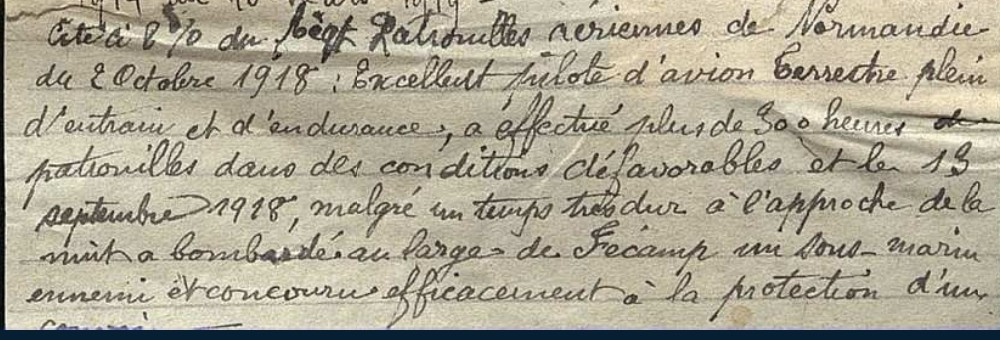 Cité à l'o/o du Régt Patrouilles aériennes de Normandie
du 2 Octobre 1918 : Excellent pilote d'avion terrestre plein
d'entrain et d'endurance, a effectué plus de 300 heures de
patrouilles dans des conditions défavorables et le 13
septembre 1918, malgré un temps très dur à l'approche de la
nuit a bombardé au large de Fécamp un sous-marin
ennemi et concouru efficacement à la protection d'un